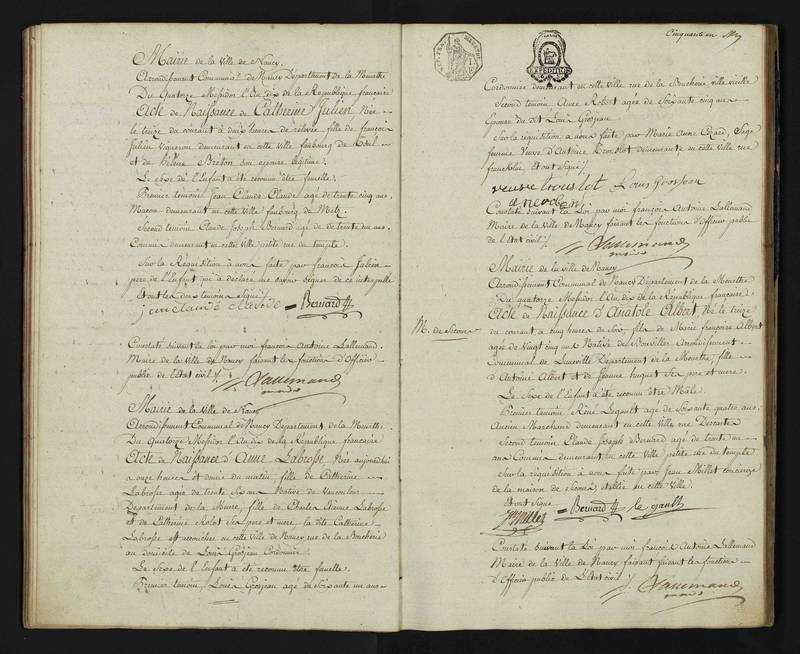 Mairie de la Ville de Nancy.
Arrondissement Communal de Nancy Département de la Meurthe
Du Quatorze Messidor l'An dix de la République française
Acte de Naissance de Catherine Julien Née
le treize du courant à deux heures de relevée fille de françois
Julien Vigneron demeurant en cette ville faubourg de
et de Hélène Breton son épouse légitime.
Le Sexe de l'Enfant a été reconnu être femelle.
Premier témoin Jean Claude Claude agé de trente cinq ans
Macon demeurant en cette Ville faubourg de Metz.
Second témoin Claude Joseph Bernard agé de trente un ans
Commis demeurant en cette Ville petite rue du temple
Sur la Réquisition à nous faite par françois Julien
pere de l'Enfant qui a déclaré ne savoir signer de ce interpellé
Et ont les deux temoins Signé
jean claude claude Bernard
Constaté suivant la loi par moi françois Antoine Lallemand
Maire de la Ville de Nancy faisant les fonctions d'Officier
public de l'Etat civil
Lallemand
maire
Mairie de la Ville de Nancy
Arrondissement Communal de Nancy Département de la Meurthe
Du Quatorze Messidor l'An dix de la République française
Acte de Naissance d'Anne Labrosse Née aujourd'hui
a onze heures et demie du matin, fille de Catherine
Labrosse agée de trente six ans Native de Vaucouleurs
Département de la Meuse, fille de Charles Etienne Labrosse
et de Catherine Ses pere et mere, la dite Catherine
Labrosse est accouchée en cette ville de Nancy rue de la Boucherie
au domicile de Louis Grosjean Cordonnier.
Le Sexe de l'Enfant a été reconnu être femelle
Premier temoin, Louis Grosjean agé de Soixante un ans
Cinquante un
Cordonnier demeurant en cette Ville, rue de la Boucherie, ville vieille
Second temoin Anne Robert agée de Soixante cinq ans
Epouse du dit Louis Grosjean
Sur la réquisition à nous faite par Marie Anne Sage
femme Veuve d'Antoine Troustot demeurante en cette Ville rue
et ont signé
veuve troustot Louis Grosjean
Constaté suivant la Loi par moi françois Antoine Lallemand
Maire de la Ville de Nancy faisant les fonctions d'Officier public
de l'Etat civil
Lallemand
maire
Mairie de la ville de Nancy
Arrondissement Communal de Nancy Département de la Meurthe
Du quatorze Messidor l'An dix de la République française
Acte de Naissance d'Anatole Albert Né le treize
du courant, a cinq heures du Soir, fils de Marie françoise Albert
agée de Vingt cinq ans Native de Arrondissement
Communal de Luneville Département de la Meurthe, fille
d'Antoine Albert et de Jeanne huguet Ses pere et mere.
Le Sexe de l'Enfant a été reconnu être Mâle.
Premier temoin, René Legault agé de Soixante quatre ans
Ancien Marchand demeurant en cette Ville, rue Descartes
Second temoin Claude Joseph Bernard agé de trente un
ans Commis demeurant en cette Ville petite rue du temple
Sur la réquisition à nous faite par Jean Millot concierge
de la maison de Secours établie en cette Ville.
Et ont Signé
Bernard le gault
Constaté suivant la Loi par moi françois Antoine Lallemand
Maire de la Ville de Nancy faisant les fonctions
d'Officier public de l'Etat civil
Lallemand
maire
M. de Secours